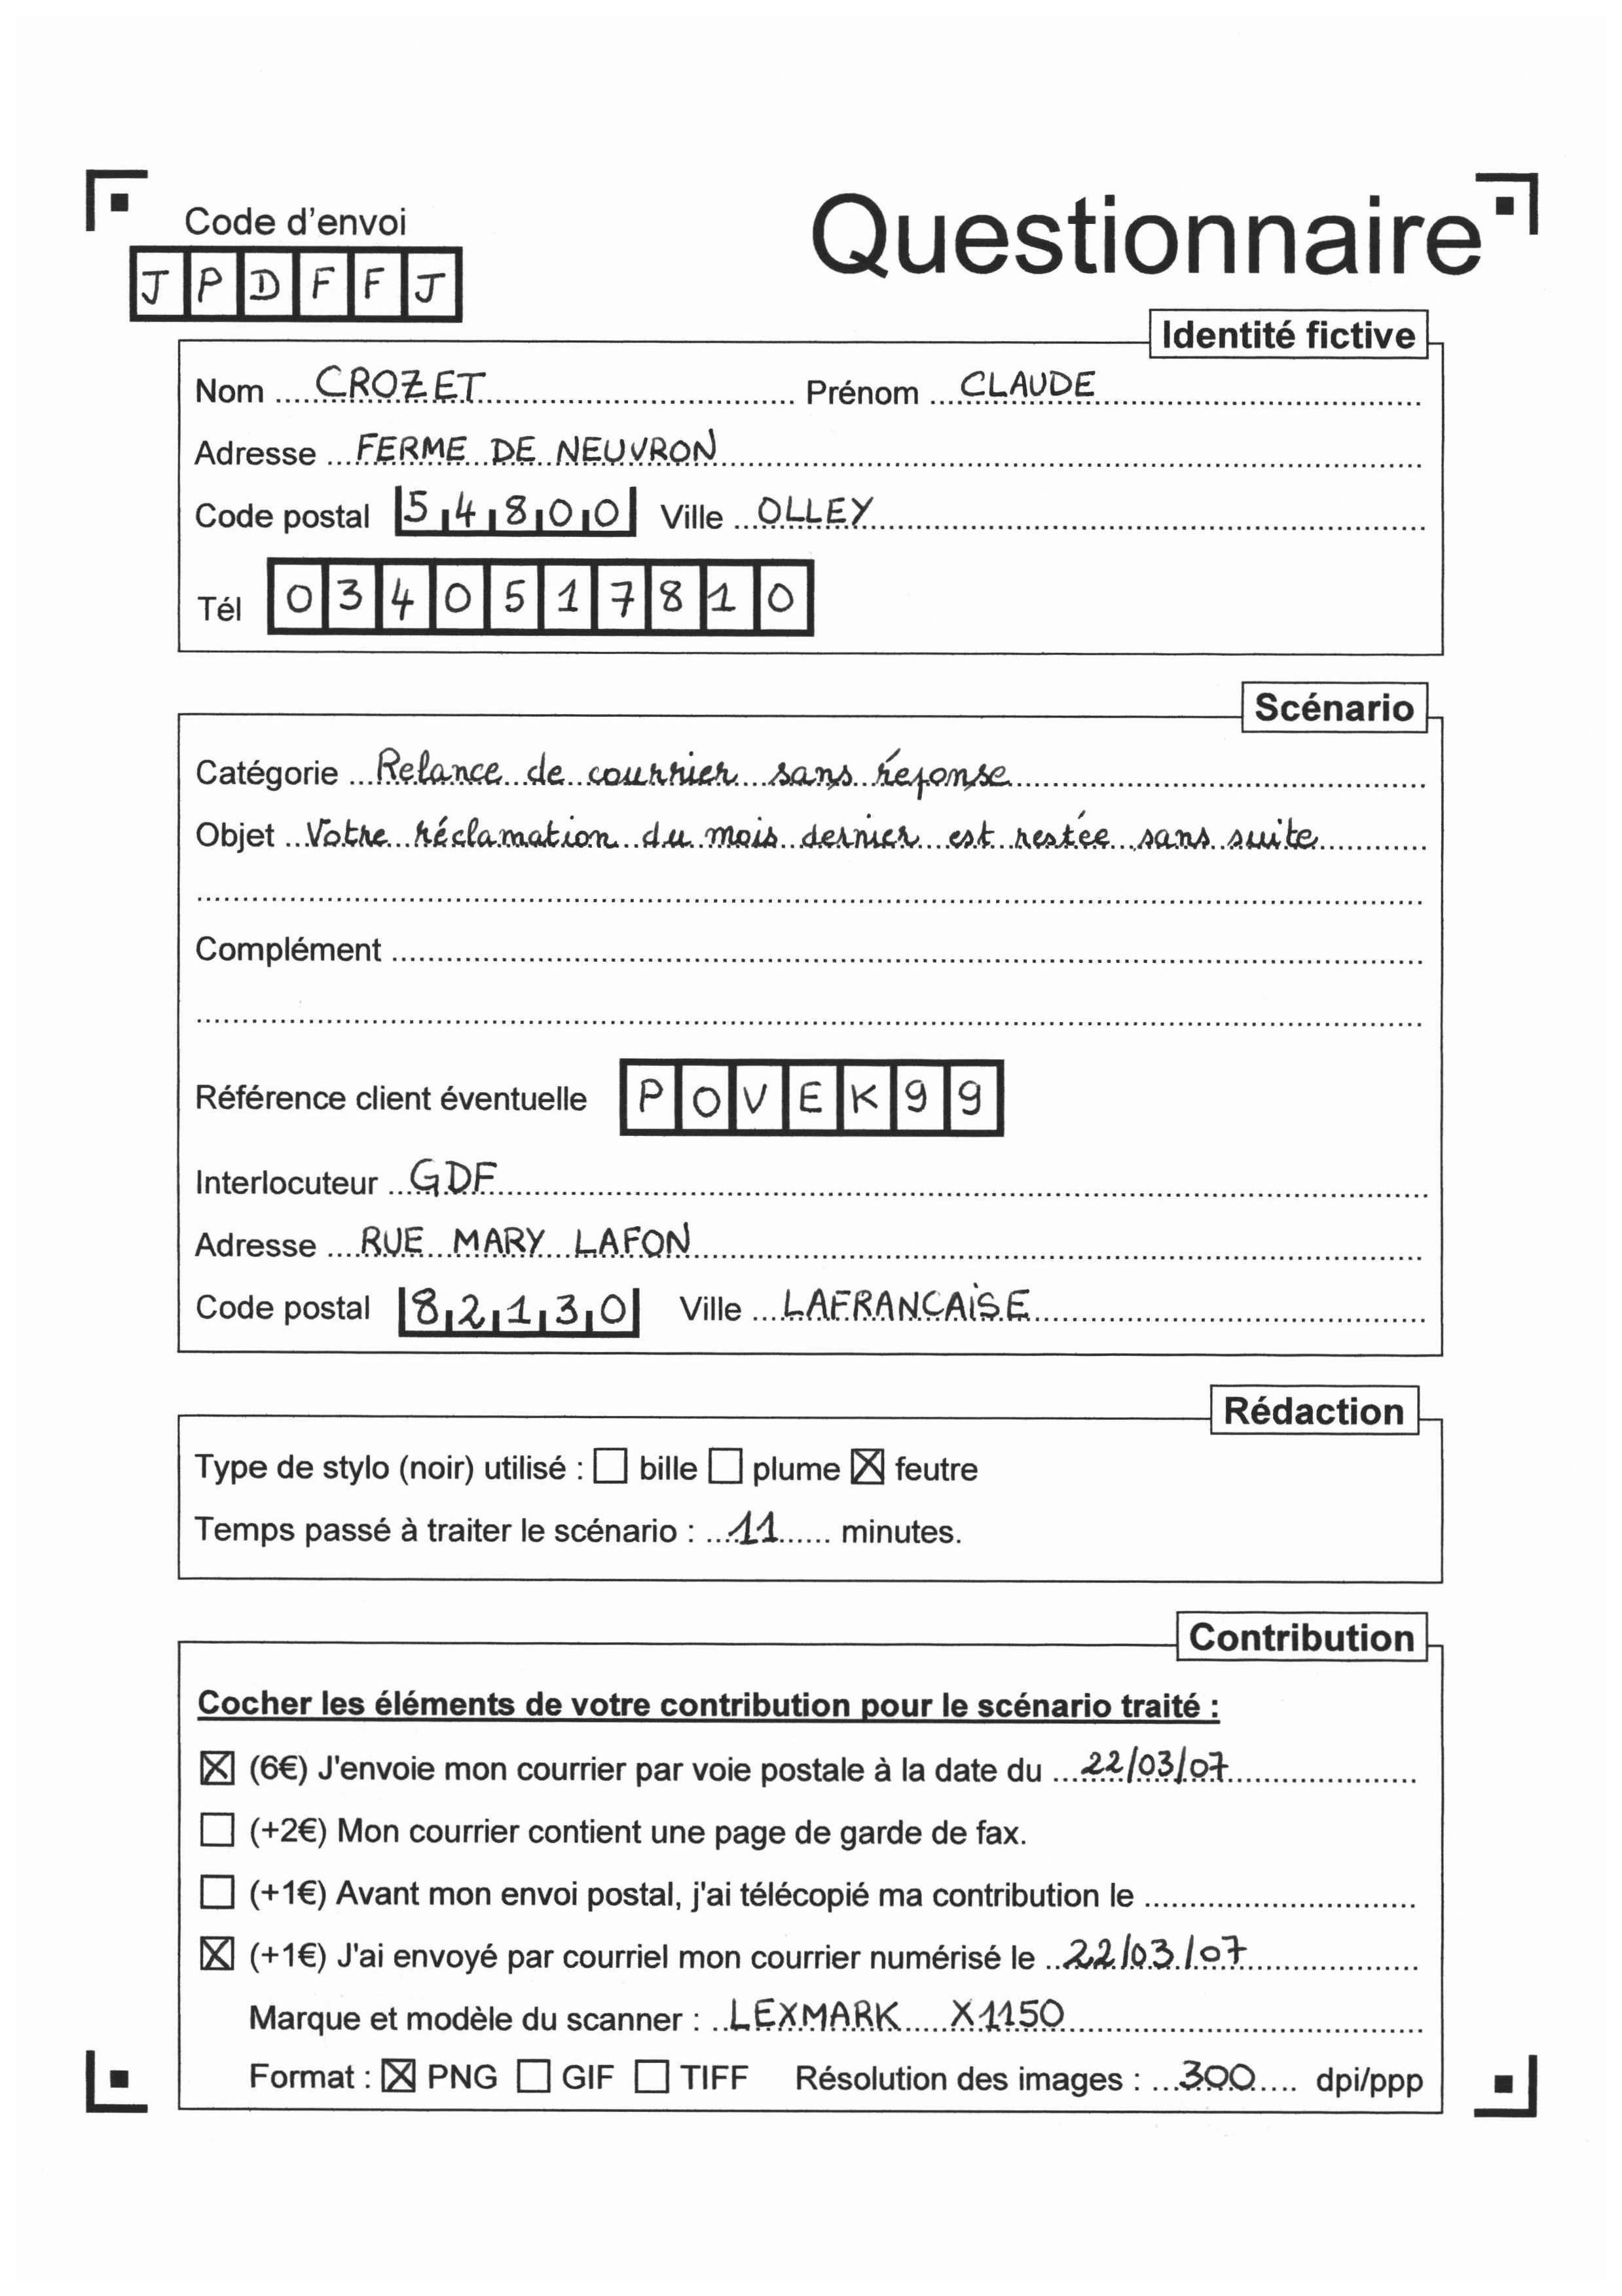 Code d'envoi
JPDFFJ
Questionnaire
Identité fictive
Nom CROZET Prénom CLAUDE
Adresse FERME DE NEUVRON
Code postal 54800 Ville OLLEY
Tél 0340517810
Scénario
Catégorie Relance de courrier sans réponse
Objet Votre réclamation du mois dernier est restée sans suite
Complément
Référence client éventuelle POVEK99
Interlocuteur GDF
Adresse RUE MARY LAFON
Code postal 82130 Ville LAFRANCAISE
Rédaction
Type de stylo (noir) utilisé : ☐ bille ☐ plume ☒ feutre
Temps passé à traiter le scénario : 11 minutes.
Contribution
Cocher les éléments de votre contribution pour le scénario traité :
☒ (6€) J'envoie mon courrier par voie postale à la date du 22/03/07
☐ (+2€) Mon courrier contient une page de garde de fax.
☐ (+1€) Avant mon envoi postal, j'ai télécopié ma contribution le
☒ (+1€) J'ai envoyé par courriel mon courrier numérisé le 22/03/07
Marque et modèle du scanner : LEXMARK X1150
Format : ☒ PNG ☐ GIF ☐ TIFF Résolution des images : 300 dpi/ppp